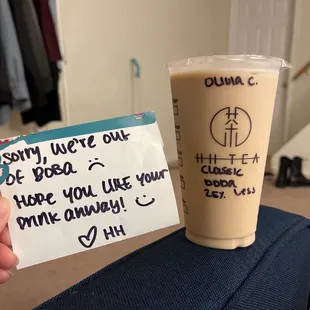 Sorry, we're out
of BOBA :(
HOPE YOU LIKE YOUR
DRINK ANYWAY! :)
♡ HH
OLIVIA C.
HH TEA
CLASSIC
BOBA
25% LESS